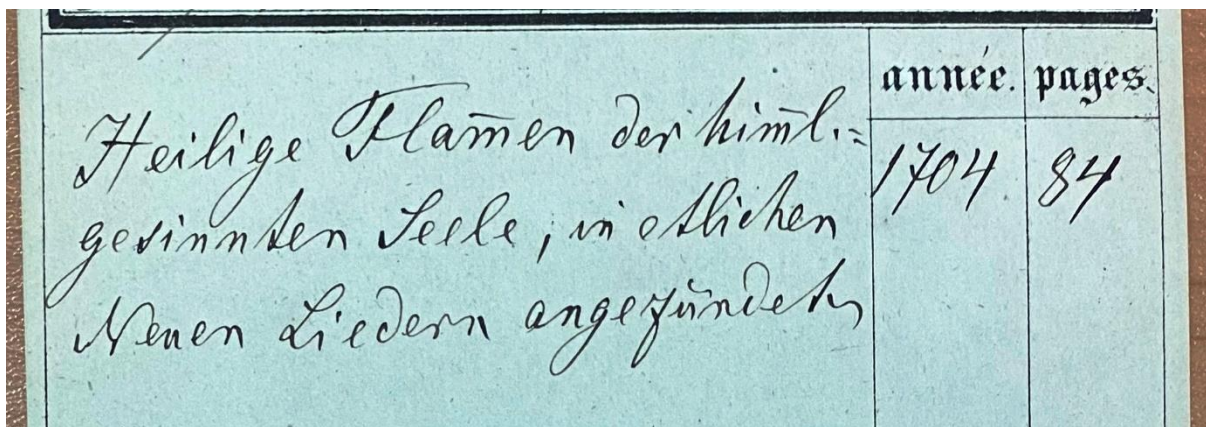 année. pages.
Heilige Flam̄en der him̄l.=
1704 84
gesinnten Seele, in etlichen
Neuen Liedern angezündet,